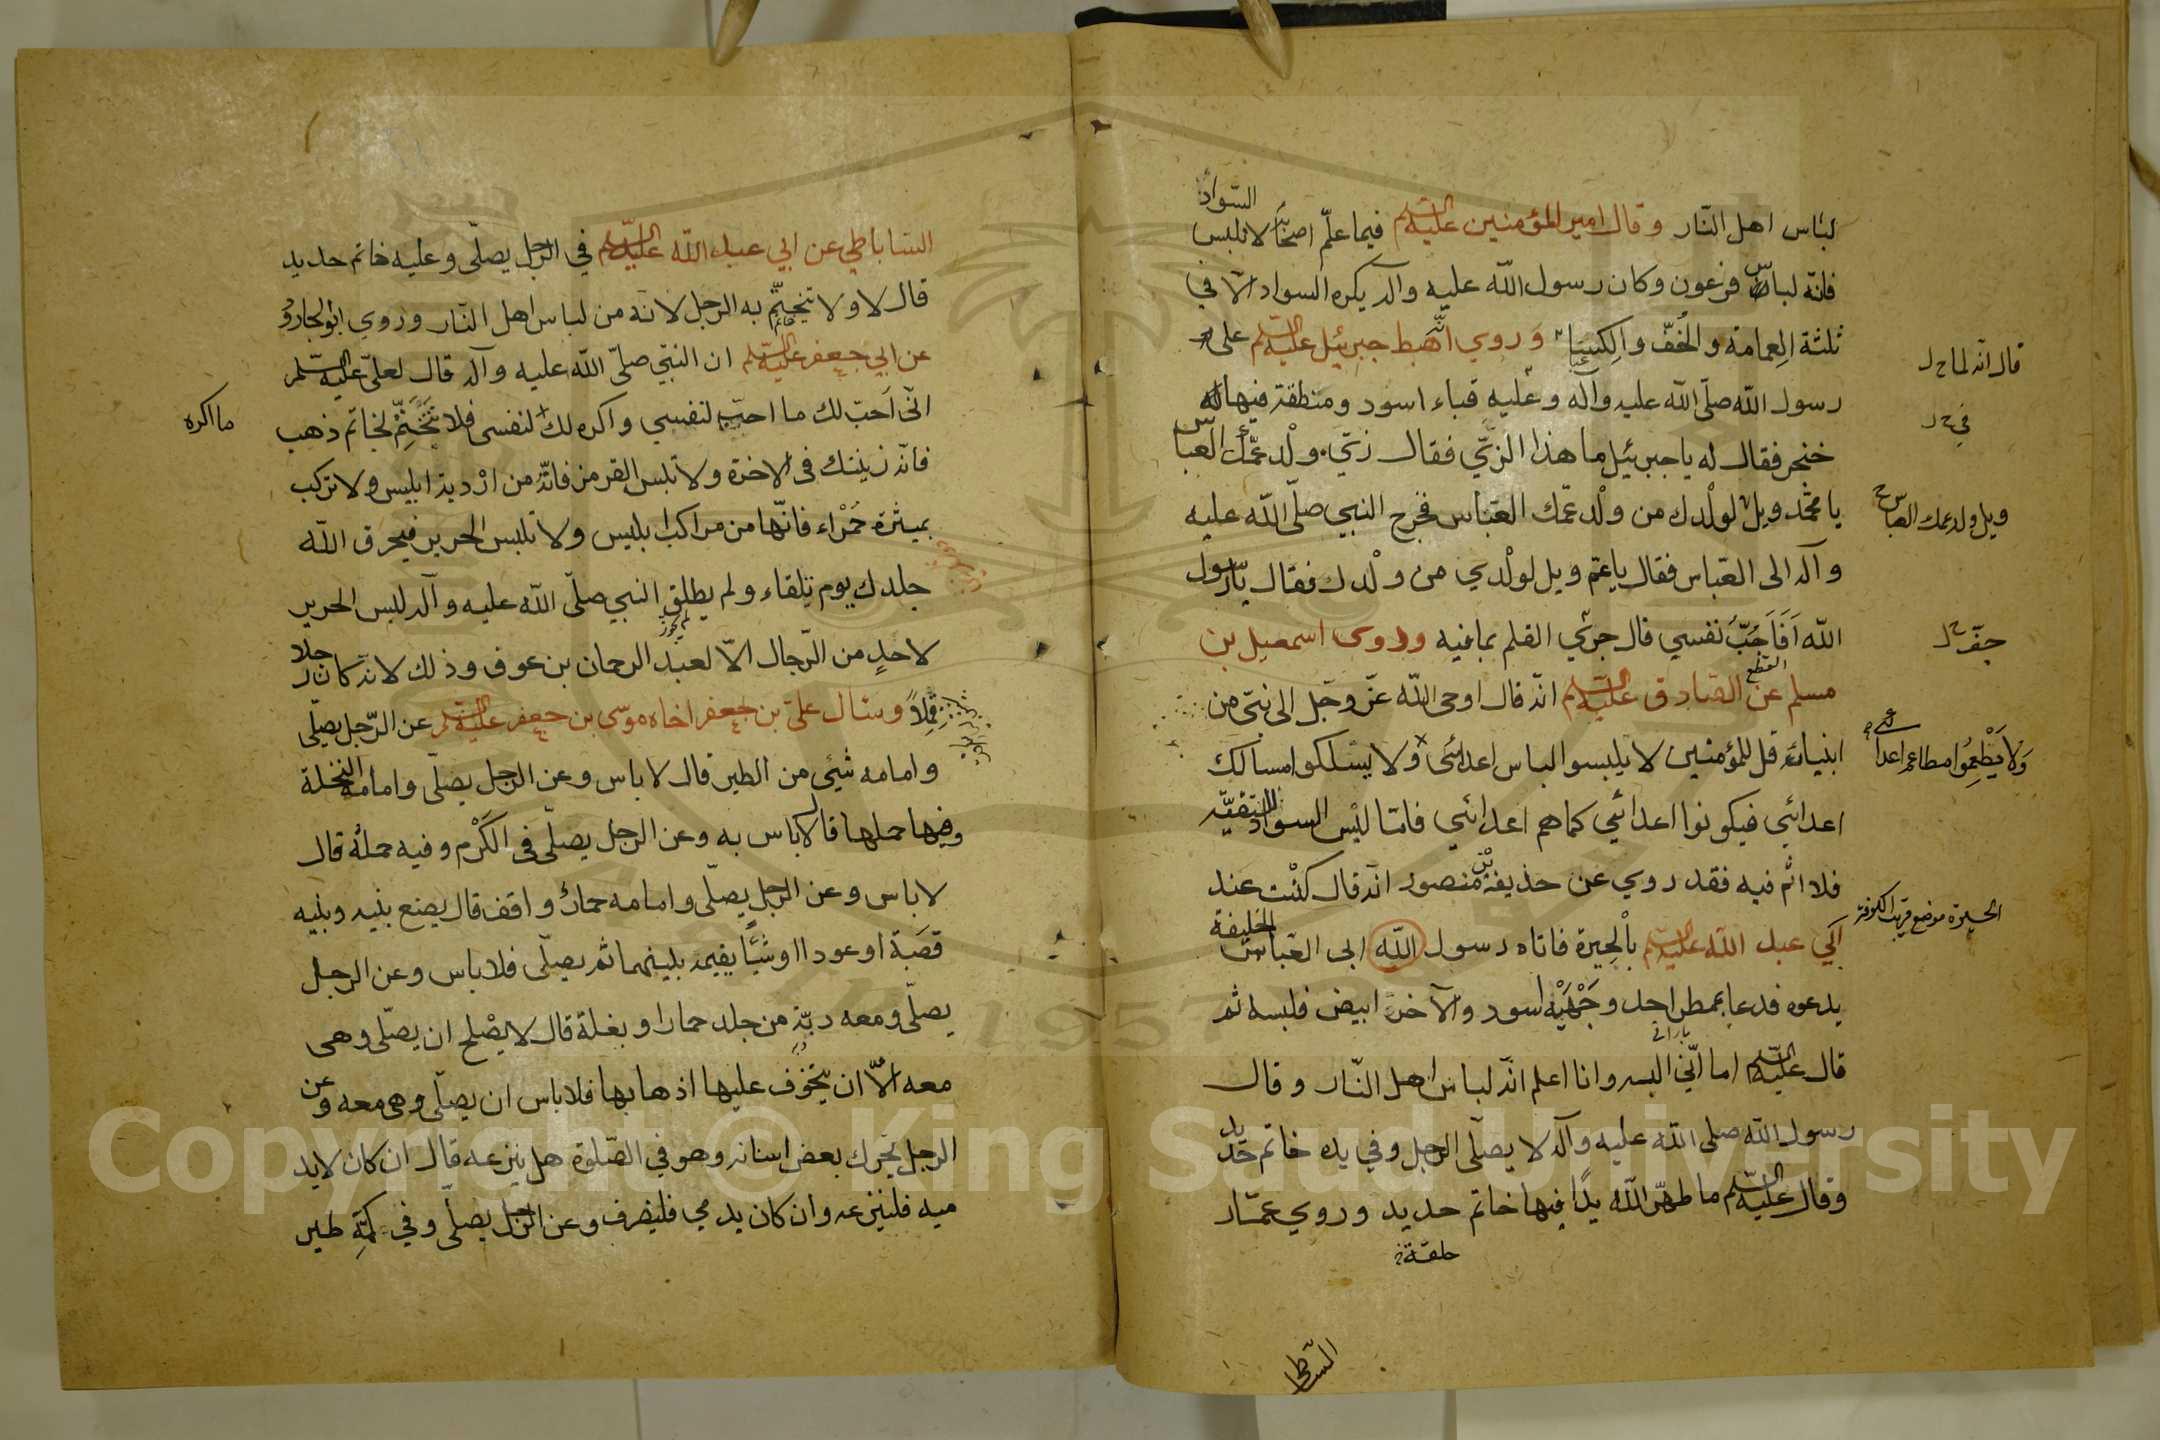 لباس اهل النّار وقال امير المؤمنين عليه السلم فيما علّم اصحابه لا تلبس السّواد
فانّه لباس فرعون وكان رسول اللّه عليه وآله يكره السواد الّا في
ثلثة العمامة والخُفّ والكِساء وروي انّه هبط جبرئيل عليه السلم على
رسول اللّه صلّى اللّه عليه وآله وعليه قباء اسود ومنطقة فيها
خنجر فقال له يا جبرئيل ما هذا الزيّ فقال زيّ ولْد عمّك العبّاس
يا محمّد ويل لولْدك من ولْد عمّك العبّاس فخرج النبي صلّى اللّه عليه
وآله الى العبّاس فقال يا عمّ ويل لولْدي من ولْدك فقال يا رسول
اللّه اَفَاَجُبُّ نفسي قال جري القلم بما فيه وروى اسمعيل بن
مسلم عن الصّادق عليه السلم انّه قال اوحى اللّه عزّ وجلّ الى نبيّ من
انبيائه قل للمؤمنين لا يلبسوا لباس اعدائي ولا يسلكوا مسالك
اعدائي فيكونوا اعدائي كما هم اعدائي فامّا لبْس السواد للتقيّة
فلا اثم فيه فقد روي عن حذيفة بن منصور انّه قال كنْت عند
ابي عبد اللّه عليه السلم بالْحِيرة فاتاه رسول اللّه ابى العبّاس الخليفة
يدعوه فدعا بممطر احد وجْهَيْه اسود والآخر ابيض فلبسه ثم
قال عليه السّلم اما انّي البسه وانا اعلم انّه لباس اهل النّار وقال
رسول اللّه صلى اللّه عليه وآله لا يصلّى الرجل وفي يده خاتم حديد
وقال عليه السّلم ما طهّر اللّه يدًا فيها خاتم حديد وروي عمّار
حلقة
قال انّه لما ح ل
في ح ل
ويل ولد عمك العباس ح
ح ل
وَلا يَطْعِمُوا مطاعم اعدائي
الحيرة موضع قريب الكوفة
السّاباطي عن ابي عبد اللّه عليه السلم في الرجل يصلّى وعليه خاتم حديد
قال لا ولا تختّم به الرجل لانّه من لباس اهل النّار وروي ابو الجارود
عن ابي جعفر عليه السّلم ان النبّي صلّى اللّه عليه وآله قال لعليّ عليه السّلم
انّى اَحبّ لك ما احبّ لنفسي واكره لك لنفسى فلا تَتَخَتّم بخاتم ذهب
فانّه زينتك فى الاخرة ولا تلبس القرمز فانّه من ارْدية ابليس ولا تركب
بميثرة حُمْراء فانّها من مراكب ابليس ولا تلبس الحرير فيحرق اللّه
جلدك يوم تلقاء ولم يطلق النبي صلّى اللّه عليه وآله لبس الحرير
لاحدٍ من الرّجال الّا لعبد الرحمان بن عوف وذلك لانّه كان رجلا
قَمِلاً وسئال علىّ بن جعفر اخاه موسى بن جعفر عليه السّلم عن الرّجل يصلّى
وامامه شيئ من الطير قال لا باس وعن الرجل يصلّى وامامه النخلة
وفيها حملها قال لا باس به وعن الرجل يصلّى فى الكَرْم وفيه حملُه قال
لا باس وعن الرجل يصلّى وامامه حمارٌ واقف قال يضع بينه وبينه
قصَبة او عودا او شيئًا يقيمه بينهما ثم يصلّى فلا باس وعن الرجل
يصلّى ومعه دبّة من جلد حمار او بغلة قال لا يصْلح ان يصلّى وهى
معه الّا ان يتخوّف عليها اذهابها فلا باس ان يصلّى وهى معه وعن
الرجل يحرّك بعض اسنانه وهو في الصّلوة هل ينزعه قال ان كان لا يد
ميه فلينزعه وان كان يدمي فلينصرف وعن الرجل يصلّى وفي كمّه طير
ما اكره
السّاباطي